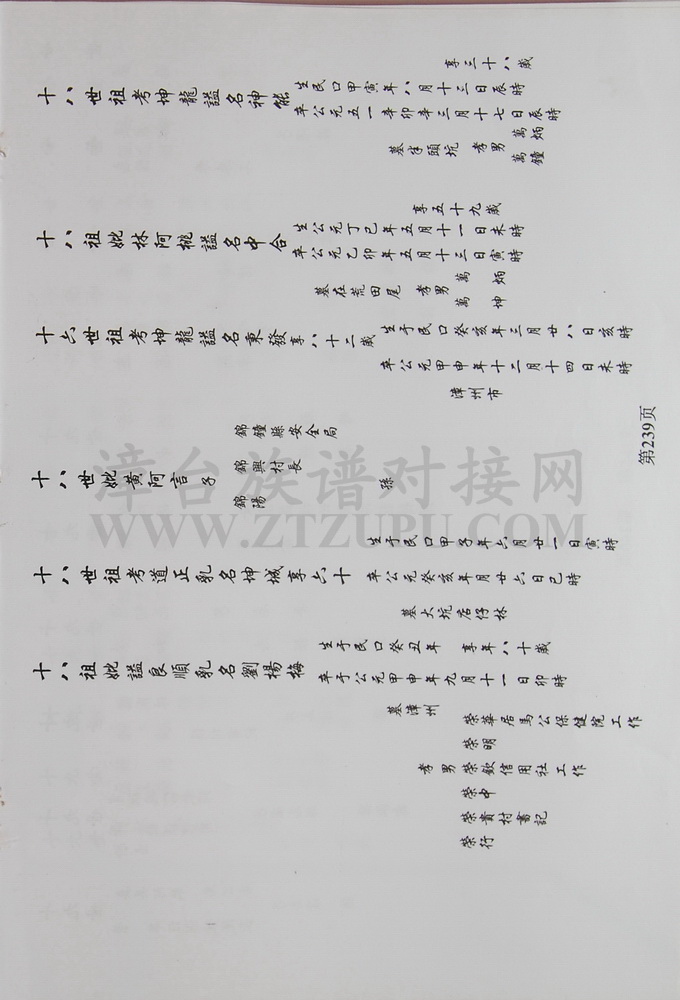 享三十八歲
生民口甲寅年八月十三日辰時
十八世祖考坤龍謚名神能
卒公元五一辛卯年三月十七日辰時
萬炳
墓半頭坑 孝男
萬鐘
享五十九歲
生公元丁巳年五月十一日未時
十八祖妣林阿桃謚名中合
卒公元乙卯年五月十三日寅時
萬炳
墓在荒田尾 孝男
萬坤
生于民口癸亥年三月廿八日亥時
十六世祖考坤龍謚名東發享八十二歲
卒公元甲申年十二月十四日未時
漳州市
錦鐘縣安全局
錦興村長
十八世妣黃阿言子 孫
錦陽
生于民口甲子年六月廿一日寅時
十八世祖考道正乳名坤城享六十
卒公元癸亥年月廿六日巳時
墓大坑店仔林
生于民口癸丑年 享年八十歲
十八祖妣謚良順乳名劉楊梅
卒于公元甲申年九月十一日卯時
墓漳州
榮華居馬公保健院工作
榮明
孝男榮欽信用社工作
榮中
榮貴村書記
榮行
第239页
漳台族谱对接网
WWW.ZTZUPU.COM